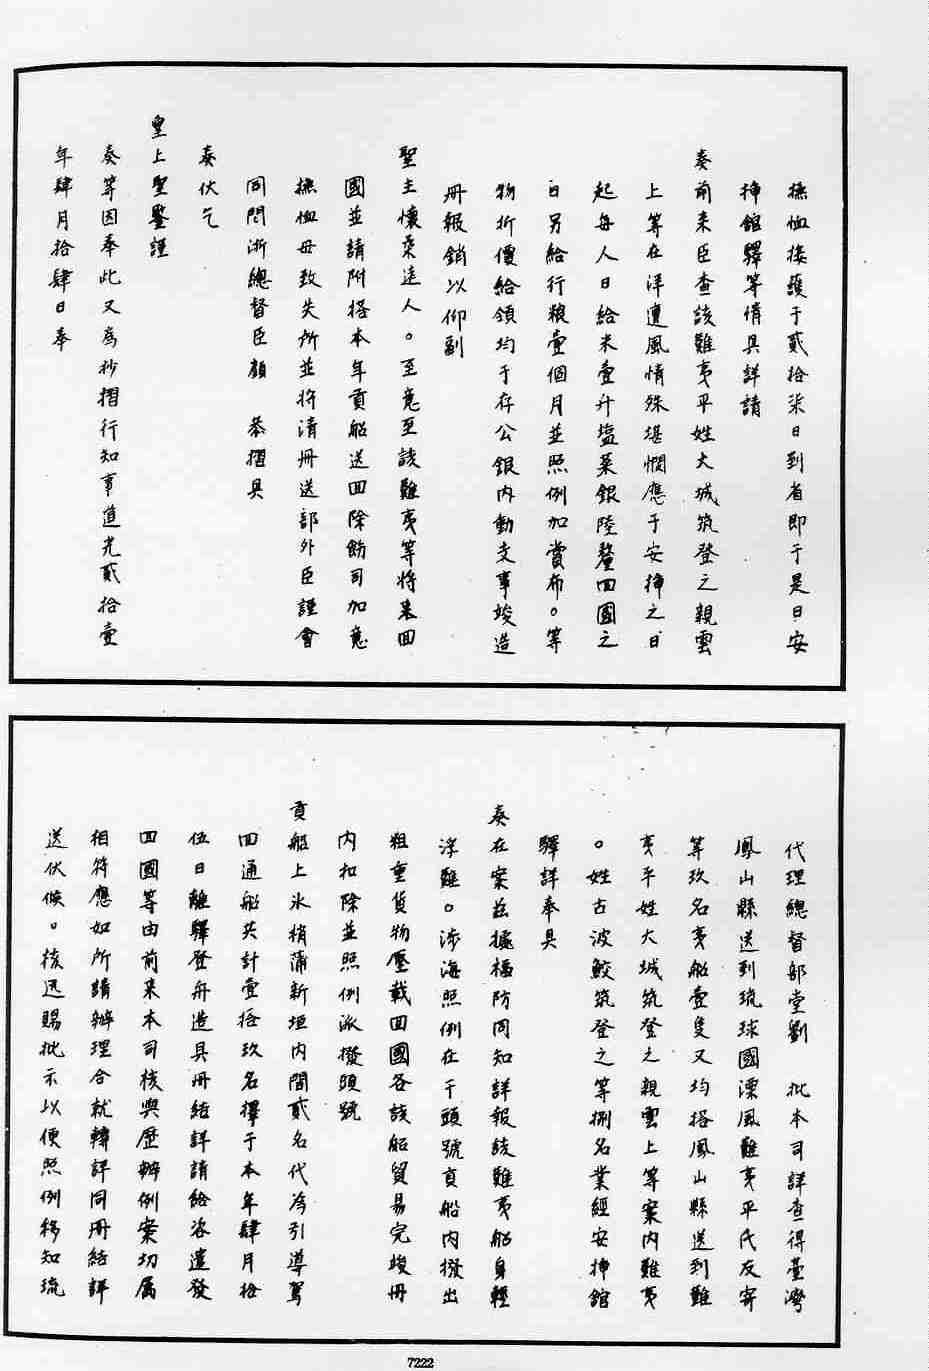 撫恤接護于貳拾柒日到省即于是日安
挿館驛等情具詳請
奏前来臣查該難夷平姓大城筑登之親雲
上等在洋遭風情殊堪憫應于安挿之日
起每人日給米壹升塩菜銀陸釐回國之
日另給行粮壹個月並照例加賞布。等
物折價給領均于存公銀内動支事竣造
册報銷以仰副
聖主懷柔遠人。至意至該難夷等將来回
國並請附搭本年貢船送回除飭司加意
撫恤毋致失所並将清冊送部外臣謹會
同閩浙總督臣顏 恭摺具
奏伏乞
皇上聖鑒謹
奏等因奉此又為抄摺行知事道光貳拾壹
年肆月拾肆日奉
代理總督部堂劉 批本司詳查得臺灣
鳳山縣送到琉球國漂風難夷平氏友寄
等玖名夷船壹隻又均搭鳳山縣送到難
夷平姓大城筑登之親雲上等案内難夷
。姓古波鮫筑登之等捌名業經安挿館
驛詳奉具
奏在案茲據福防同知詳報該難夷船身輕
浮難。涉海照例在于頭號貢船内撥出
粗重貨物壓載回國各該船貿易完竣冊
内扣除並照例派撥頭號
貢船上水梢蒲新垣内間貳名代為引導駕
回通船共計壹拾玖名擇于本年肆月拾
伍日離驛登舟造具冊結詳請給咨遣發
回國等由前来本司核與歷辦例案切屬
相符應如所請辦理合就轉詳同冊結詳
送伏候。核迅賜批示以便照例移知琉
7222